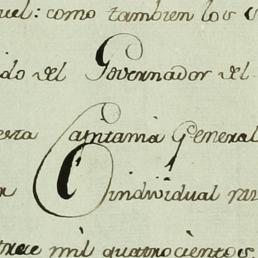 uel: como tambien los
ido del Governador del
Capitania Gral General
individual
trece mil quatrocientos